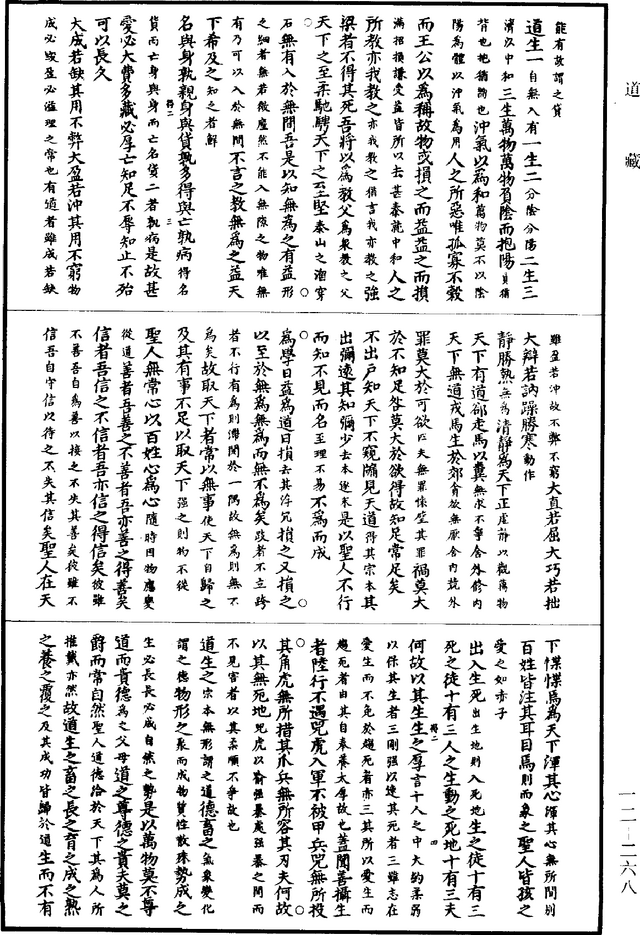 道藏
能有故謂之貸
道生一自無入有一生二分陰分陽二生三
濟以中和三生萬物萬物負陰而抱陽負猶
背也抱猶嚮也沖氣以為和萬物莫不以陰
陽為體以沖氣為用人之所惡唯孤寡不穀
而王公以為稱故物或損之而益益之而損
滿招損謙受益皆所以去甚泰就中和人之
所教亦我教之亦我教之猶言我亦教之強
梁者不得其死吾將以為教父為衆教之父
天下之至柔馳騁天下之至堅泰山之溜穿
石無有入於無間吾是以知無為之有益形
之細者無若微塵然不能入無隙之物唯無
有乃可以入於無間不言之教無為之益天
下希及之知之者鮮
名與身孰親身與貨孰多得與亡孰病得名
貨而亡身與身而亡名貨二者孰病是故甚
愛必大費多藏必厚亡知足不辱知止不殆
可以長久
大成若缺其用不弊大盈若沖其用不窮物
成必毀盈必溢理之常也有道者雖成若缺
雖盈若沖故不弊不窮大直若屈大巧若拙
大辯若訥躁勝寒動作
靜勝熱無為清靜為天下正虛靜以觀萬物
天下有道卻走馬以糞無求不爭舍外修內
天下無道戎馬生於郊貪欲無厭舍內競外
罪莫大於可欲匹夫無罪懷璧其罪禍莫大
於不知足咎莫大於欲得故知足常足矣
不出戶知天下不窺牖見天道得其宗本其
出彌遠其知彌少去本逐末是以聖人不行
而知不見而名至理不易不為而成
為學日益為道日損去其浮冗損之又損之
以至於無為無為而無不為矣跂者不立跨
者不行有為則滯閡於一隅故無為則無不
為矣故取天下者常以無事使天下自歸之
及其有事不足以取天下強之則物不從
聖人無常心以百姓心為心隨時因物應變
從道善者吾善之不善者吾亦善之得善矣
信者吾信之不信者吾亦信之得信矣彼雖
不善吾自為善以接之不失其善矣彼雖不
信吾自守信以待之不失其信矣聖人在天
下惵惵焉為天下渾其心渾其心無所間別
百姓皆注其耳目焉則而象之聖人皆孩之
愛之如赤子
出入生死出生地則入死地生之徒十有三
死之徒十有三人之生動之死地十有三夫
何故以其生生之厚言十人之中大約柔弱
以保其生者三剛強以速其死者三雖志在
愛生而不免於趨死者亦三其所以愛生而
趨死者由其自奉養太厚故也蓋聞善攝生
者陸行不遇兕虎入軍不被甲兵兕無所投
其角虎無所措其爪兵無所容其刃夫何故
以其無死地兕虎以喻強暴處強暴之間而
不見害者以其柔順不爭故也
道生之宗本無形謂之道德畜之氣象變化
謂之德物形之聚而成物質性散殊勢成之
生必長長必成自然之勢是以萬物莫不尊
道而貴德為之父母道之尊德之貴夫莫之
爵而常自然聖人道德洽於天下其為人所
推戴亦然故道生之畜之長之育之成之熟
之養之覆之及其成功皆歸於道生而不有
得二
三
得二
四
一二-二六八